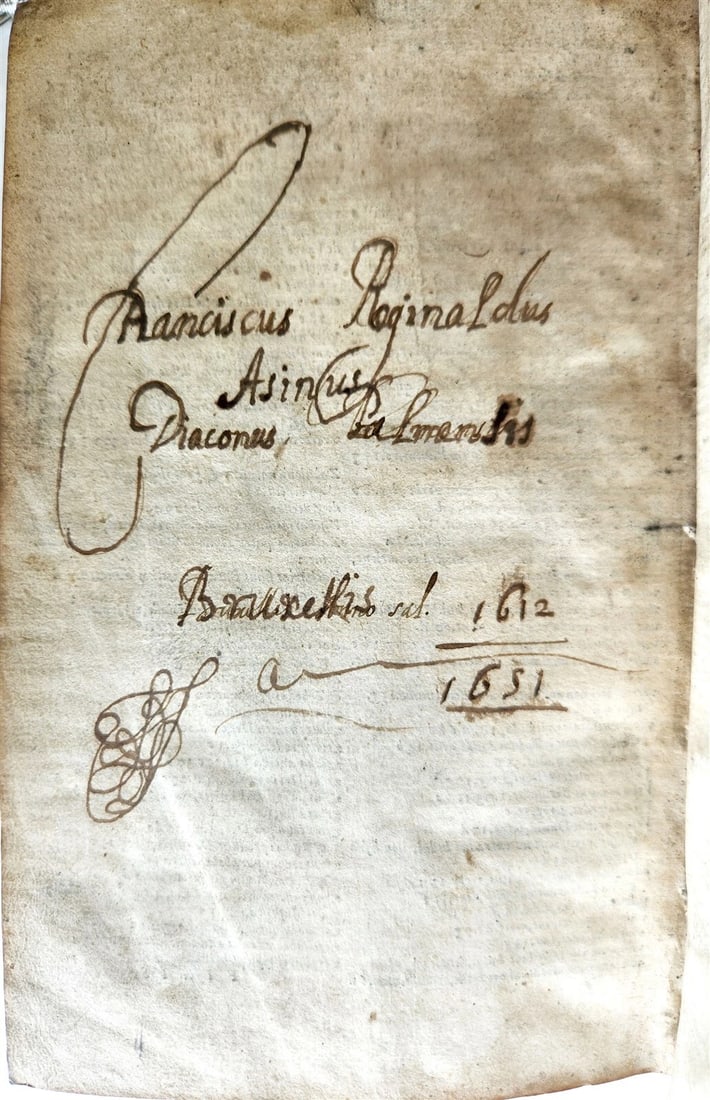 Franciscus Reginaldus
Asinius
Diaconus Palmensis
Bruxellis sal. 1612
a 1651